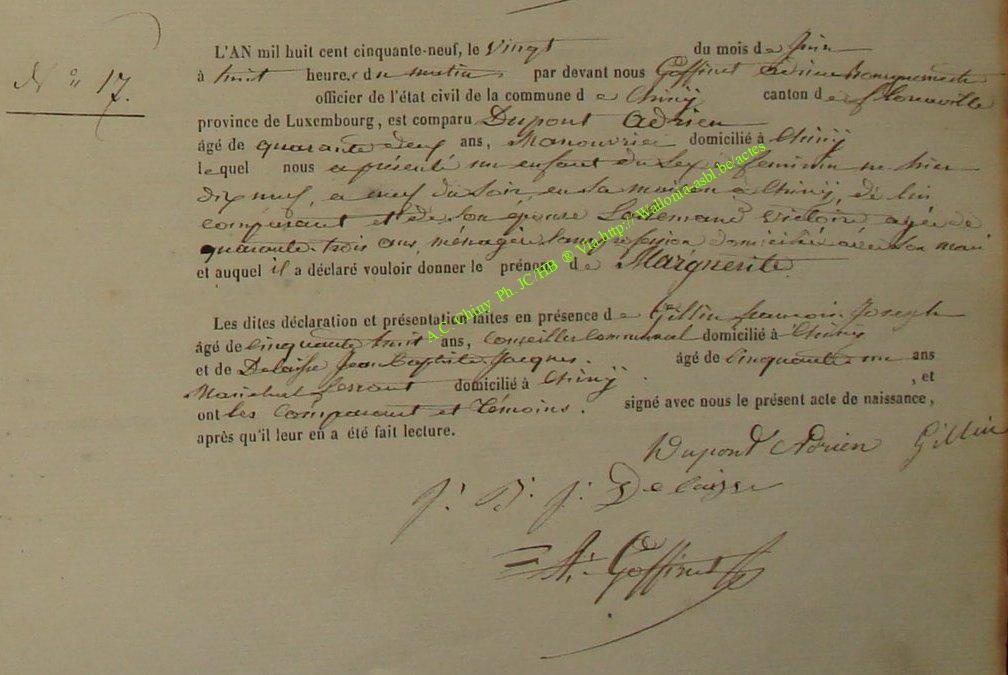 N° 17.
L'AN mil huit cent cinquante-neuf, le Vingt du mois de Juin
à huit heures du matin par devant nous Goffinet Adrien Bourgmestre
officier de l'état civil de la commune de Chiny canton de Florenville
province de Luxembourg, est comparu Dupont Adrien
âgé de quarante deux ans, Manouvrier domicilié à Chiny
lequel nous a présenté un enfant du Sexe féminin né hier
dix neuf, a neuf du Soir en Sa maison a Chiny, de lui
comparant et de Son épouse Lallemand Victoire agée de
quarante trois ans ménagère Sans profession domiciliée avec Son mari
et auquel il a déclaré vouloir donner le prénom de Marguerite.
Les dites déclaration et présentation faites en présence de Gillin francois Joseph
âgé de Cinquante huit ans, Conseiller Communal domicilié à Chiny
et de Delaisse Jean Baptiste Jacques. âgé de Cinquante un ans
Maréchal ferrant domicilié à Chiny. , et
ont les Comparant et témoins. signé avec nous le présent acte de naissance,
après qu'il leur en a été fait lecture.
Dupont Adrien Gillin
J. B. J. Delaisse
A. Goffinet
A.C. Chiny Ph. JC/HB ® Via http://Wallonia-asbl.be/actes